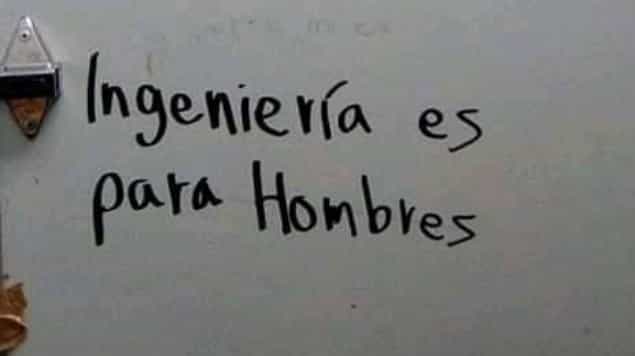 Ingeniería es
para Hombres